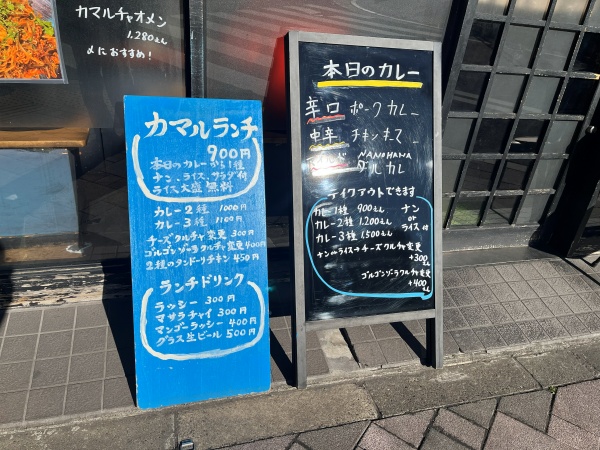 カマルチャオメン
1,280えん
〆におすすめ!
カマルランチ
900円
本日のカレーから1種
ナン、ライス、サラダ付
ライス大盛 無料
カレー2種 1000円
カレー3種 1100円
チーズクルチャ変更 300円
ゴルゴンゾーラクルチャ変更 400円
2種のタンドーリチキン 450円
ランチドリンク
ラッシー 300円
マサラチャイ 300円
マンゴーラッシー 400円
グラス生ビール 500円
本日のカレー
辛口 ポークカレー
中辛 チキン
NANOHANA
ダルカレ
テイクアウトできます
カレー1種 900えん
カレー2種 1,200えん
カレー3種 1,500えん
ナン
or
ライス付
ナンorライス→チーズクルチャ変更
+300えん
ゴルゴンゾーラクルチャ変更
+400えん